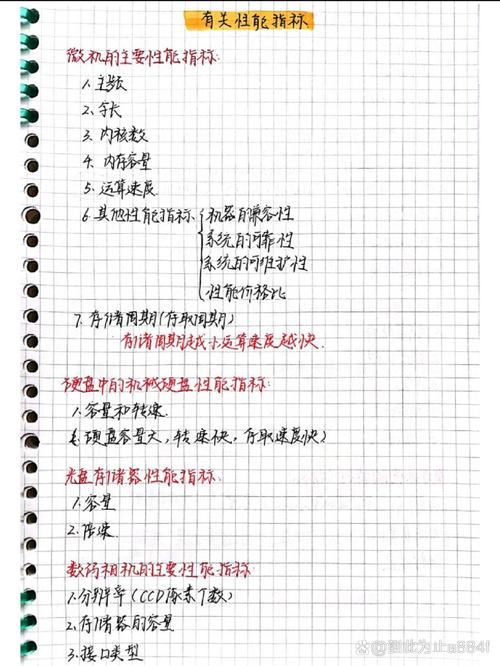 有关性能指标
微机的主要性能指标:
1.主频
2.字长
3.内核数
4.内存容量
5.运算速度
6.其他性能指标
机器的兼容性
系统的可靠性
系统的可维护性
性能价格比
7.存储周期(存取周期)
存储周期越小运算速度越快.
硬盘中的机械硬盘性能指标:
1.容量和转速.
(硬盘容量大,转速快,存取速度快)
光盘存储器性能指标.
1.容量
2.倍速.
数码相机的主要性能指标:
1.分辨率(CCD像素个数)
2.存储器的容量
3.接口类型
@到此为止a884f